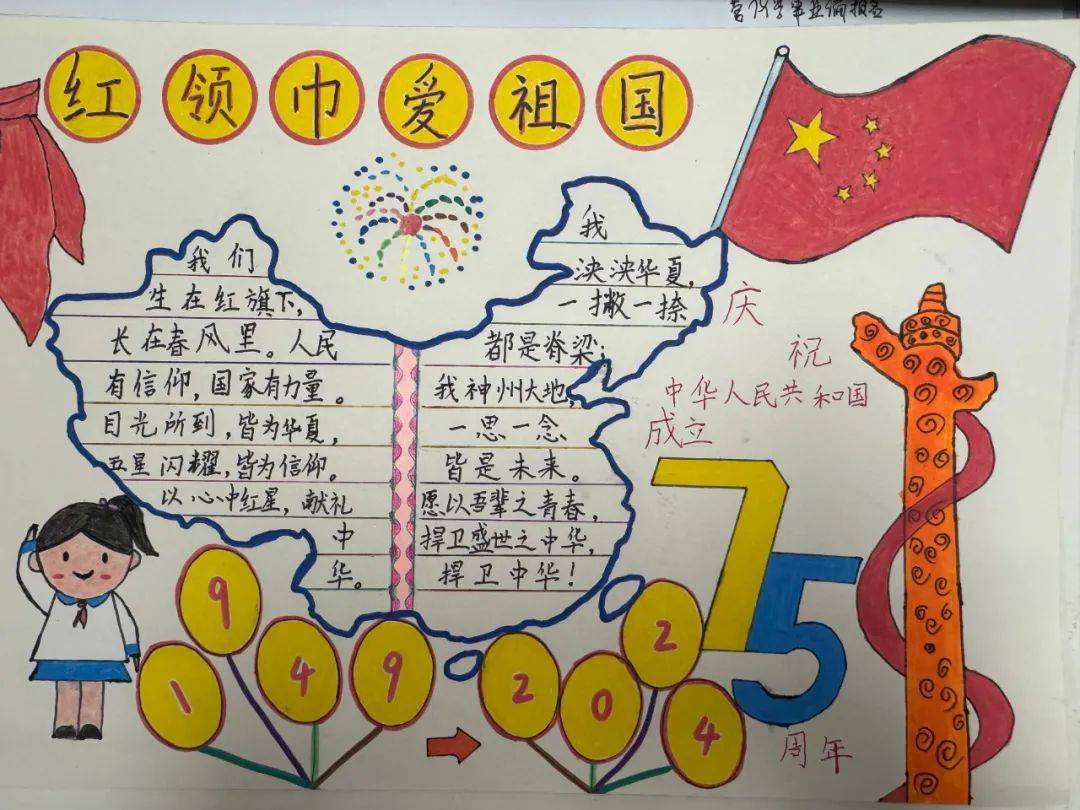 红领巾爱祖国
我们
生在红旗下,
长在春风里。人民
有信仰,国家有力量。
目光所到,皆为华夏,
五星闪耀,皆为信仰。
以心中红星,献礼
中
华。
我
泱泱华夏,
一撇一捺
都是脊梁;
我神州大地,
一思一念
皆是未来。
愿以吾辈之青春,
捍卫盛世之中华,
捍卫中华!
庆
祝
中华人民共和国
成立
75
周年
1949
2024